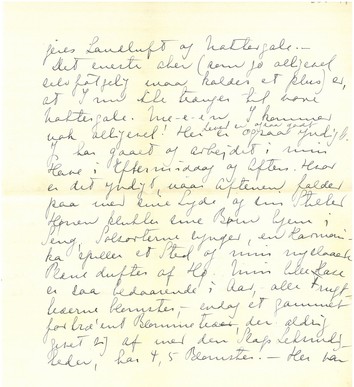 jeres Landluft og Nattergale. –
Det eneste aber (som jo alligevel
selvfølgelig maa kaldes et plus) er,
at I nu ikke trænger til vore
Nattergale. Næ-e-i-n, I kommer
nok alligevel! Her er ogsaa yndigt.
I har gaaet og arbejdet i min
Have i Eftermiddag og Aften. Hvor
er det yndigt, naar Aftenen falder
paa med sine Lyde og
Konen kalder sine Børn hjem i
Seng, Solsorterne synger, en Harmoni-
ka spiller et Sted og min nyslaaede
Plæne dufter af Hø. Min Have
er saa bedaarende i Aar, alle Frugt-
træerne blomstrer, endog et gammelt
forbrændt Blommetræ, der aldrig
givet sig af med den Slags
heder, har 4, 5 Blomster. – Her var